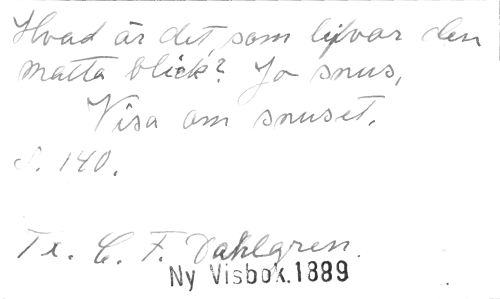 Hvad är det som lifvar den
matta blick? Jo snus,
Visa om snuset.
S. 140.
Tx. C. F. Dahlgren.
Ny Visbok.1889